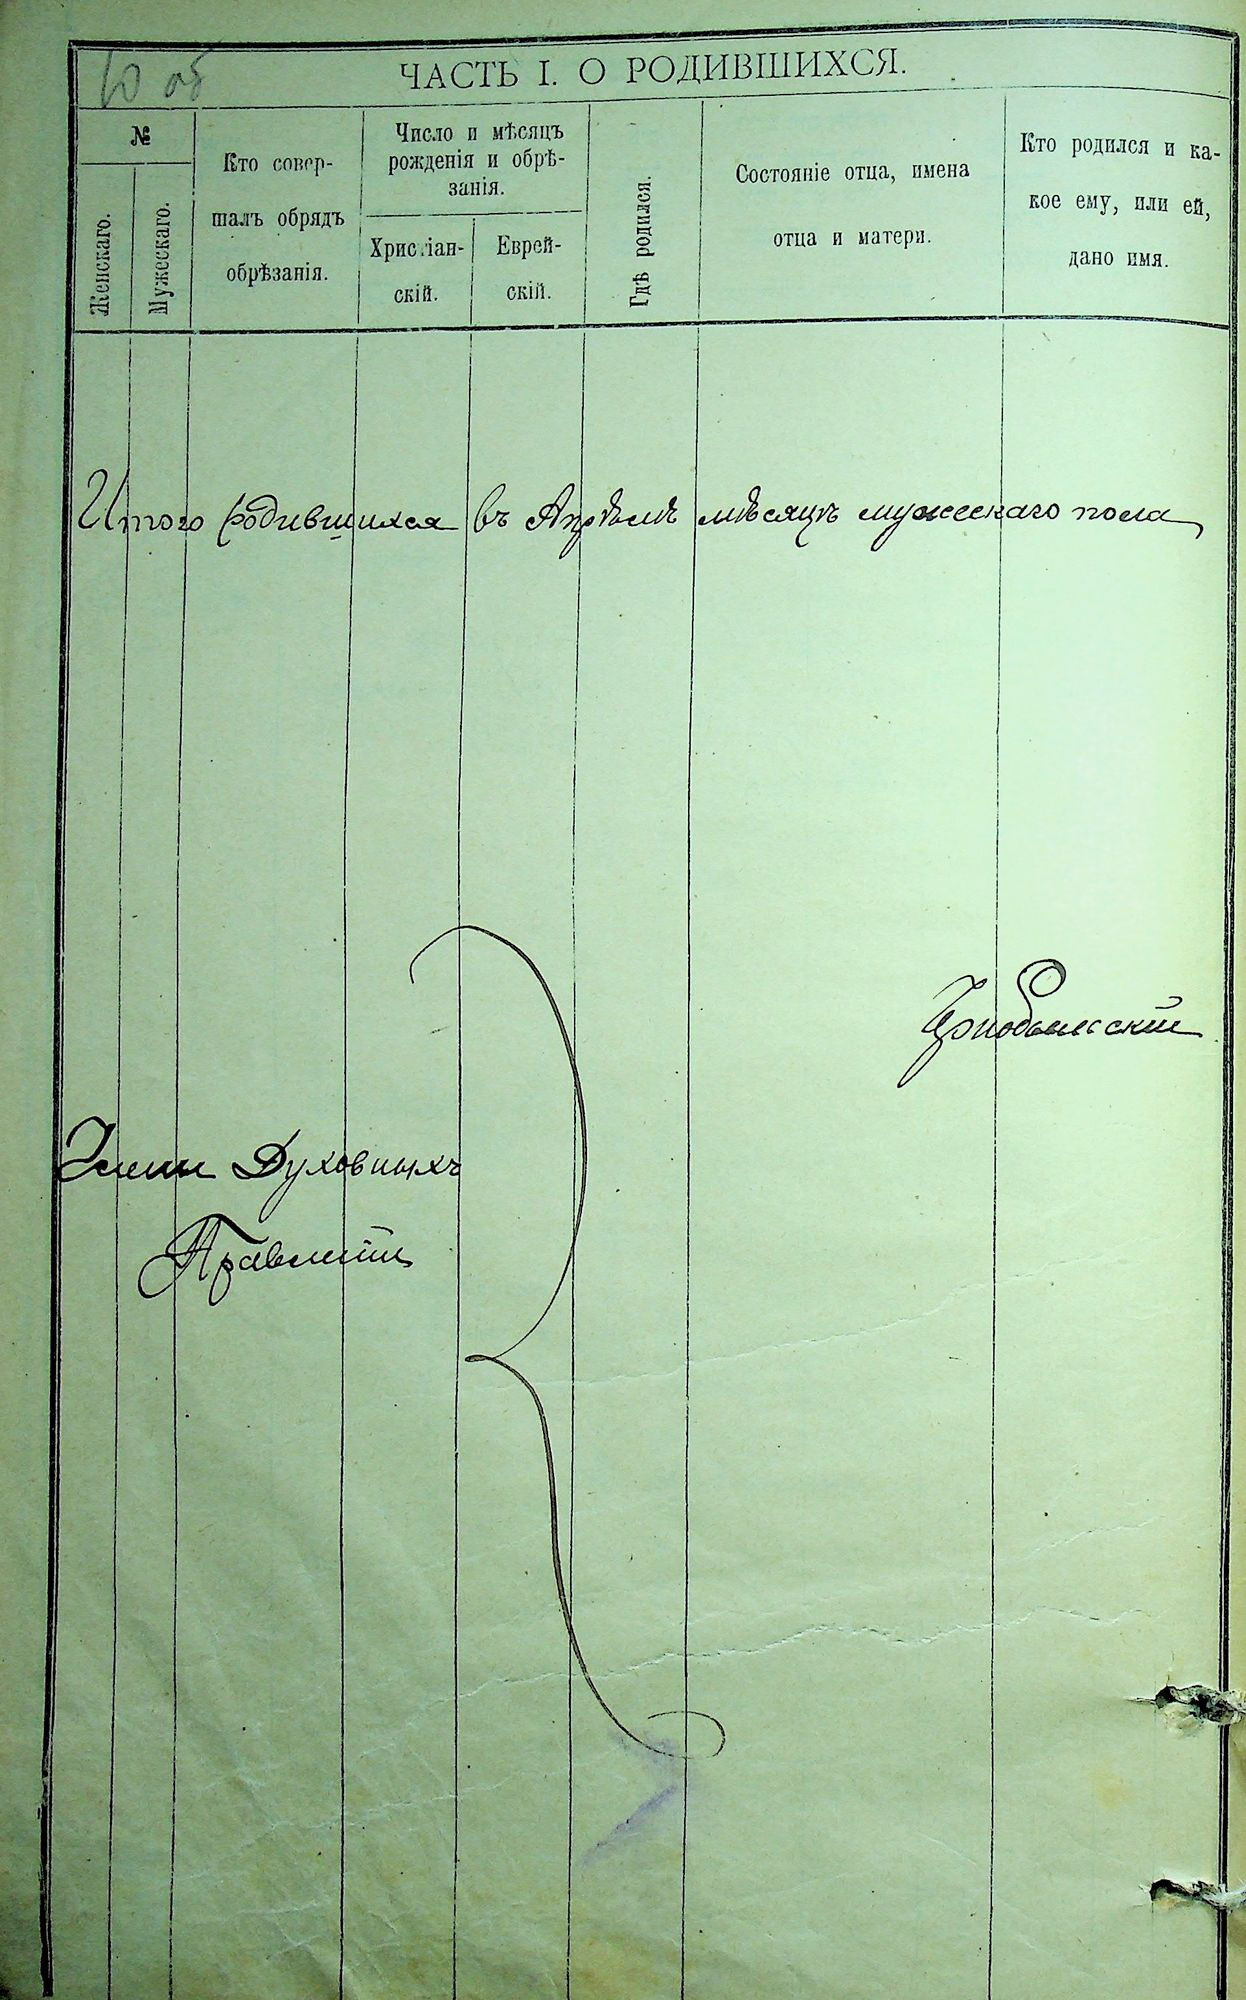 10 об
ЧАСТЬ I. О РОДИВШИХСЯ.
№
Женскаго.
Мужескаго.
Кто совер-
шалъ обрядъ
обрѣзанія.
Число и мѣсяцъ
рожденія и обрѣ-
занія.
Христіан-
скій.
Еврей-
скій.
Гдѣ родился.
Состояніе отца, имена
отца и матери.
Кто родился и ка-
кое ему, или ей,
дано имя.
Итого родившихся въ Апрѣлѣ мѣсяцѣ мужескаго пола
Члены Духовныхъ
Правленій